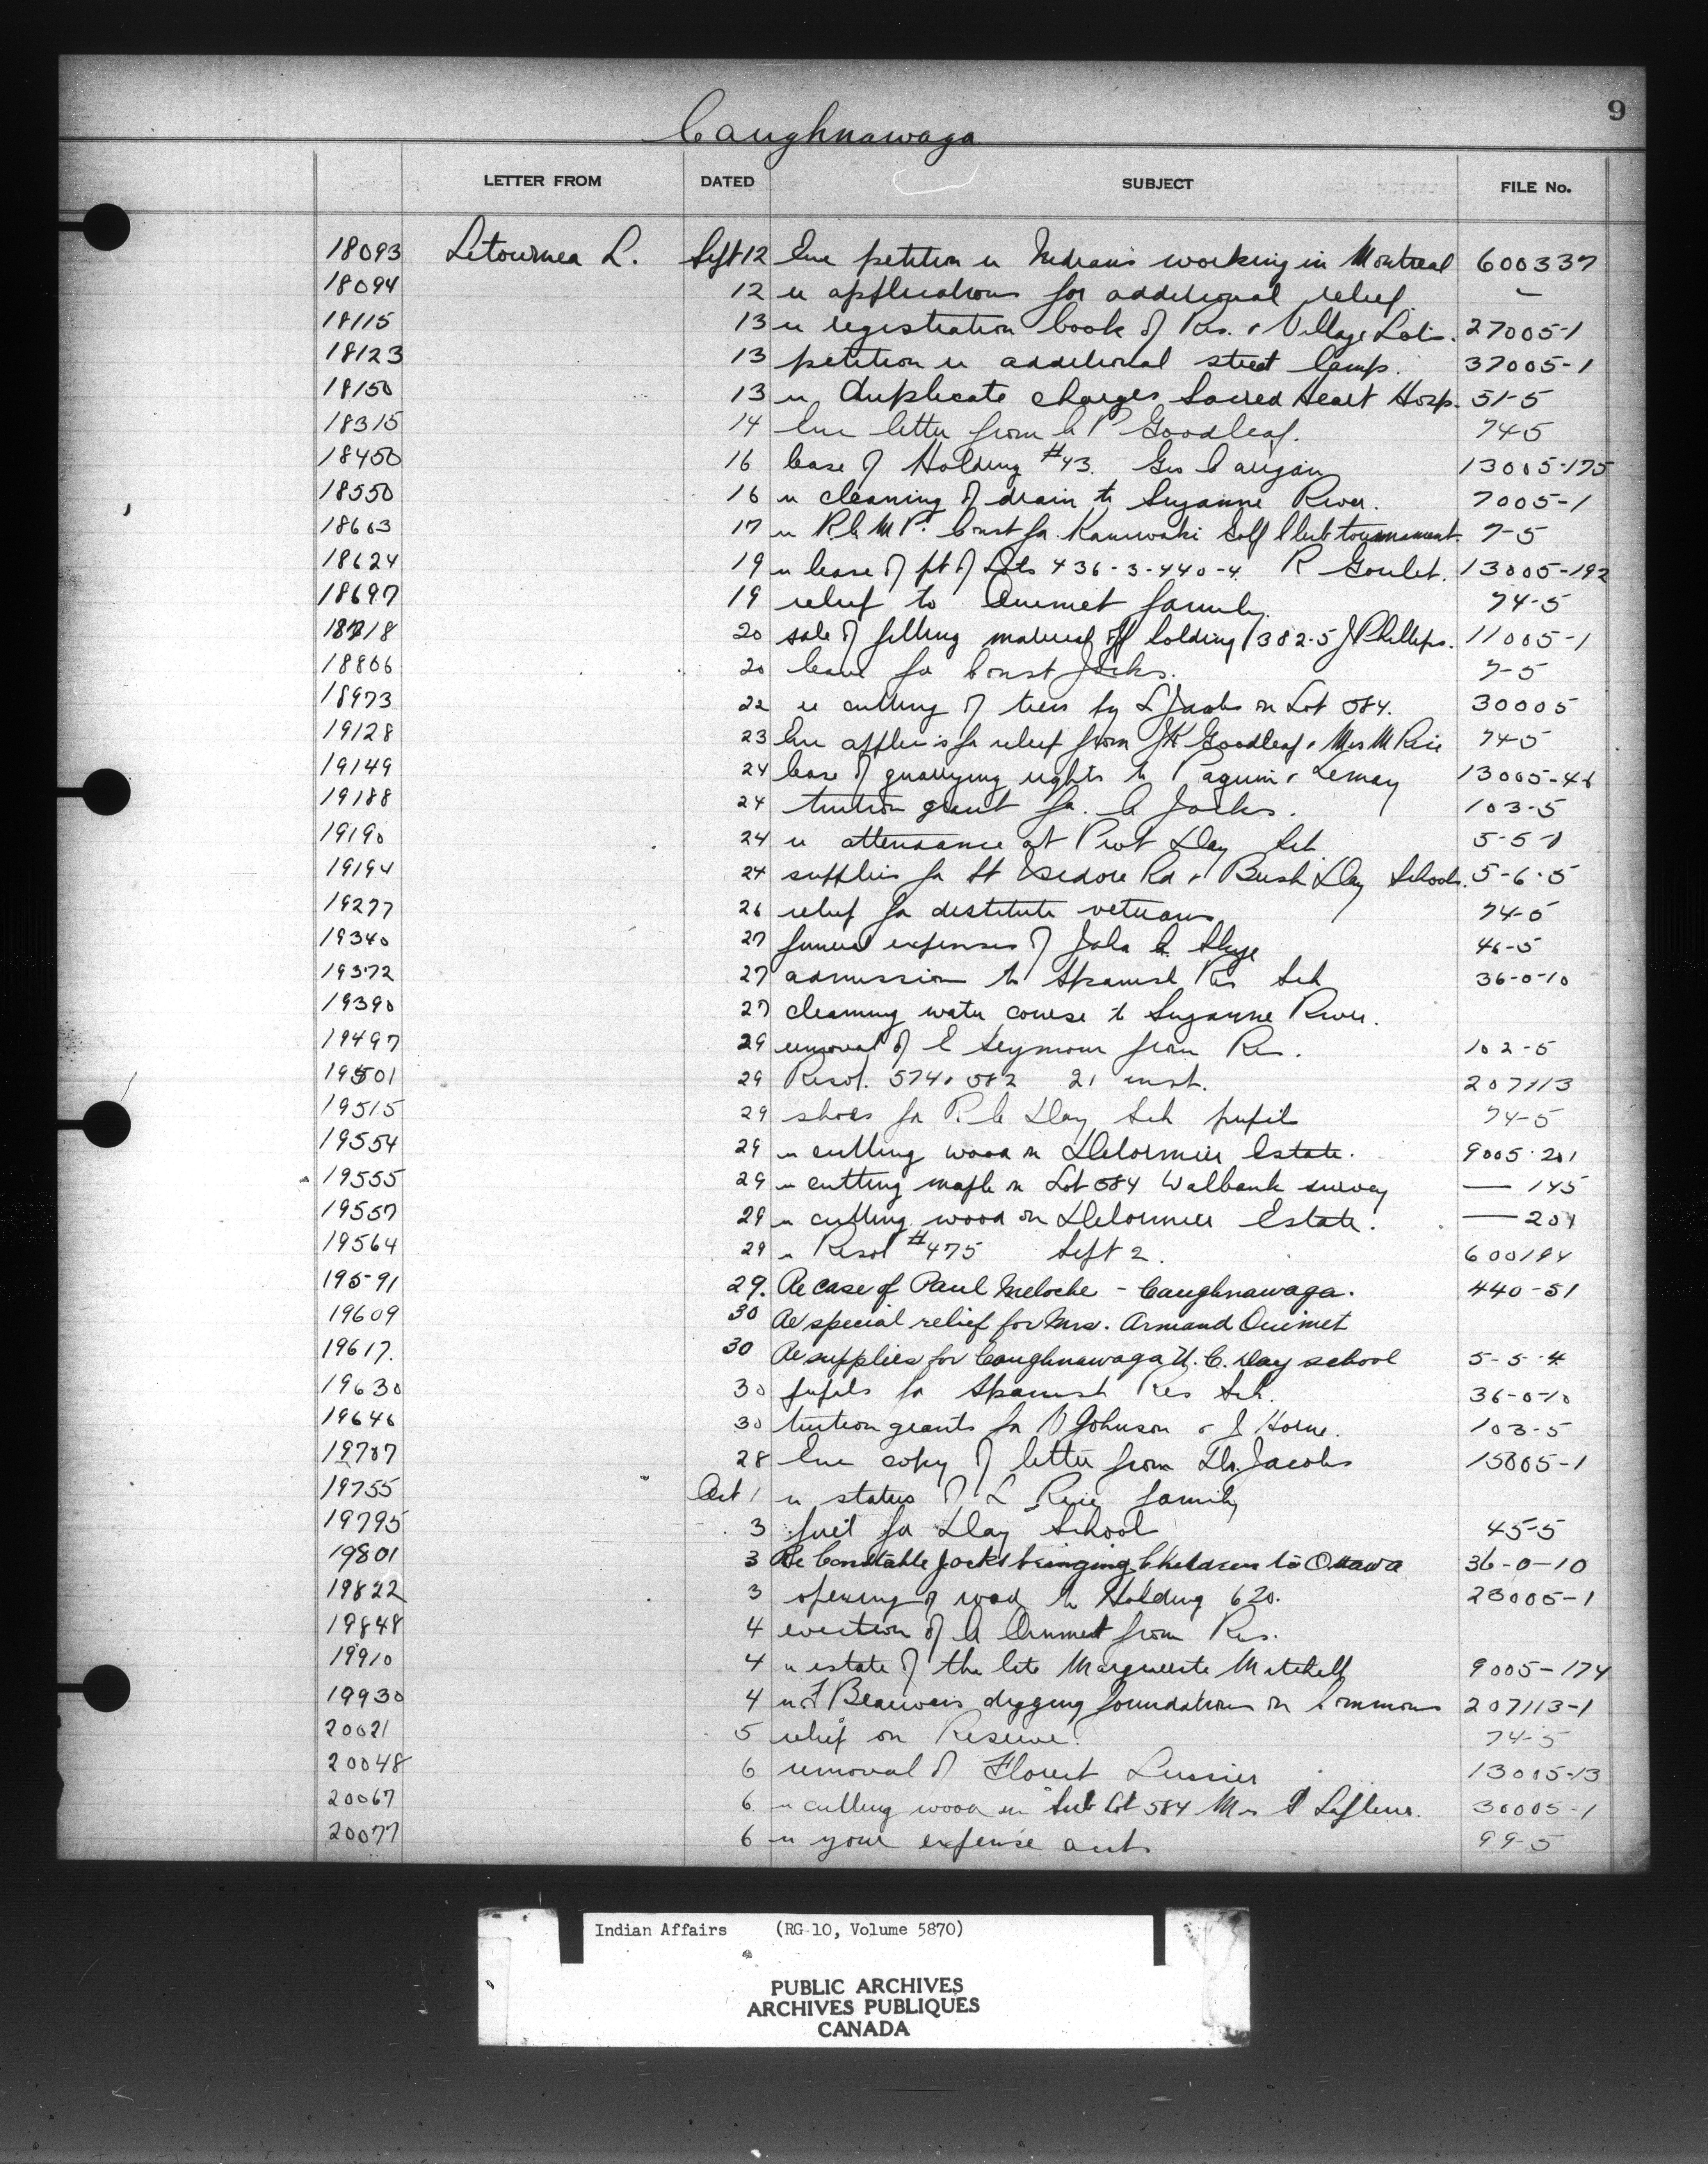 9
Caughnawaga
LETTER FROM DATED SUBJECT FILE No.
18093 Letournea L. Sept 12 Enc petition re Indians working in Montreal 600337
18094 12 re applications for additional relief. —
18115 13 re registration book of Res. & Village Lots. 27005-1
18123 13 petition re additional street lamps. 37005-1
18150 13 re duplicate charges Sacred Heart Hosp. 51-5
18315 14 Enc letter from P Goodleaf. 74-5
18450 16 lease of Holding #43. Geo 13005-175
18550 16 re cleaning of drain to Suzanne River. 7005-1
18603 17 re R.C.M.P. Const for Kanawaki Golf Club tournament. 7-5
18624 19 re lease of pt of Lots 436-3-440-4 R Goulet. 13005-192
18697 19 relief to Ouimet family. 74-5
18718 20 sale of filling material off holding 382-5 J Phillips. 11005-1
18806 20 leave for Const Jocks. 7-5
18973 22 re cutting of trees by L Jacobs on Lot 584. 30005
19128 23 Enc applic's for relief from JK Goodleaf & Mrs M Rice 74-5
19149 24 lease of quarrying rights to Paquin & Lemay 13005-46
19188 24 tuition grant for C Jocks. 103-5
19190 24 re attendance at Prot Day Sch 5-5-1
19194 24 supplies for St Isidore Rd & Bush Day Schools. 5-6-5
19277 26 relief for destitute veterans 74-5
19340 27 funeral expenses of John Skye 46-5
19372 27 admission to Spanish Res Sch 36-0-10
19390 27 cleaning water course to Suzanne River.
19497 29 removal of E Seymour from Res. 102-5
19501 29 Resol. 574 & 582 21 inst. 207113
19515 29 shoes for R.C. Day Sch pupils 74-5
19554 29 re cutting wood on Delormier Estate. 9005-201
19555 29 re cutting maple on Lot 584 Walbank survey — 145
19557 29 re cutting wood on Delormier Estate. — 201
19564 29 re Resol #475 Sept 2. 600194
19591 29. Re case of Paul Meloche - Caughnawaga. 440-51
19609 30 Re special relief for Mrs. Armand Ouimet
19617. 30 Re supplies for Caughnawaga U.C. Day school 5-5-4
19630 30 pupils for Spanish Res Sch. 36-0-10
19646 30 tuition grants for Johnson & J Horne. 103-5
19707 28 Enc copy of letter from Dr. Jacobs 15005-1
19755 Oct 1 re status of L Rice family
19795 3 fuel for Day School 45-5
19801 3 Re Constable Jocks bringing Children to Ottawa 36-0-10
19822 3 opening of road to Holding 620. 23005-1
19848 4 eviction of A Ouimet from Res.
19910 4 re estate of the late Marguerite Mitchell 9005-174
19930 4 re F Beauvais digging foundations on Commons 207113-1
20021 5 relief on Reserve. 74-5
20048 6 removal of Florent Lussier 13005-13
20067 6 re cutting wood on Sub Lot 584 Mrs Lafleur. 30005-1
20077 6 re your expense acct. 99-5
Indian Affairs (RG 10, Volume 5870)
PUBLIC ARCHIVES
ARCHIVES PUBLIQUES
CANADA